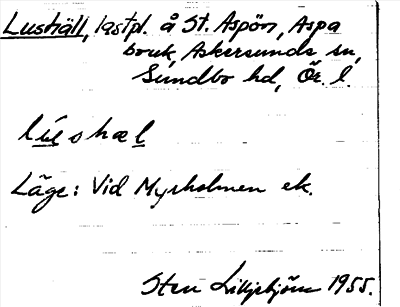 Lushäll, lastpl. å St. Aspön, Aspa
bruk, Askersunds sn,
Sundbo hd, Ör. l.
lúshæl
Läge: Vid Myrholmen ek.
Sten 1955.